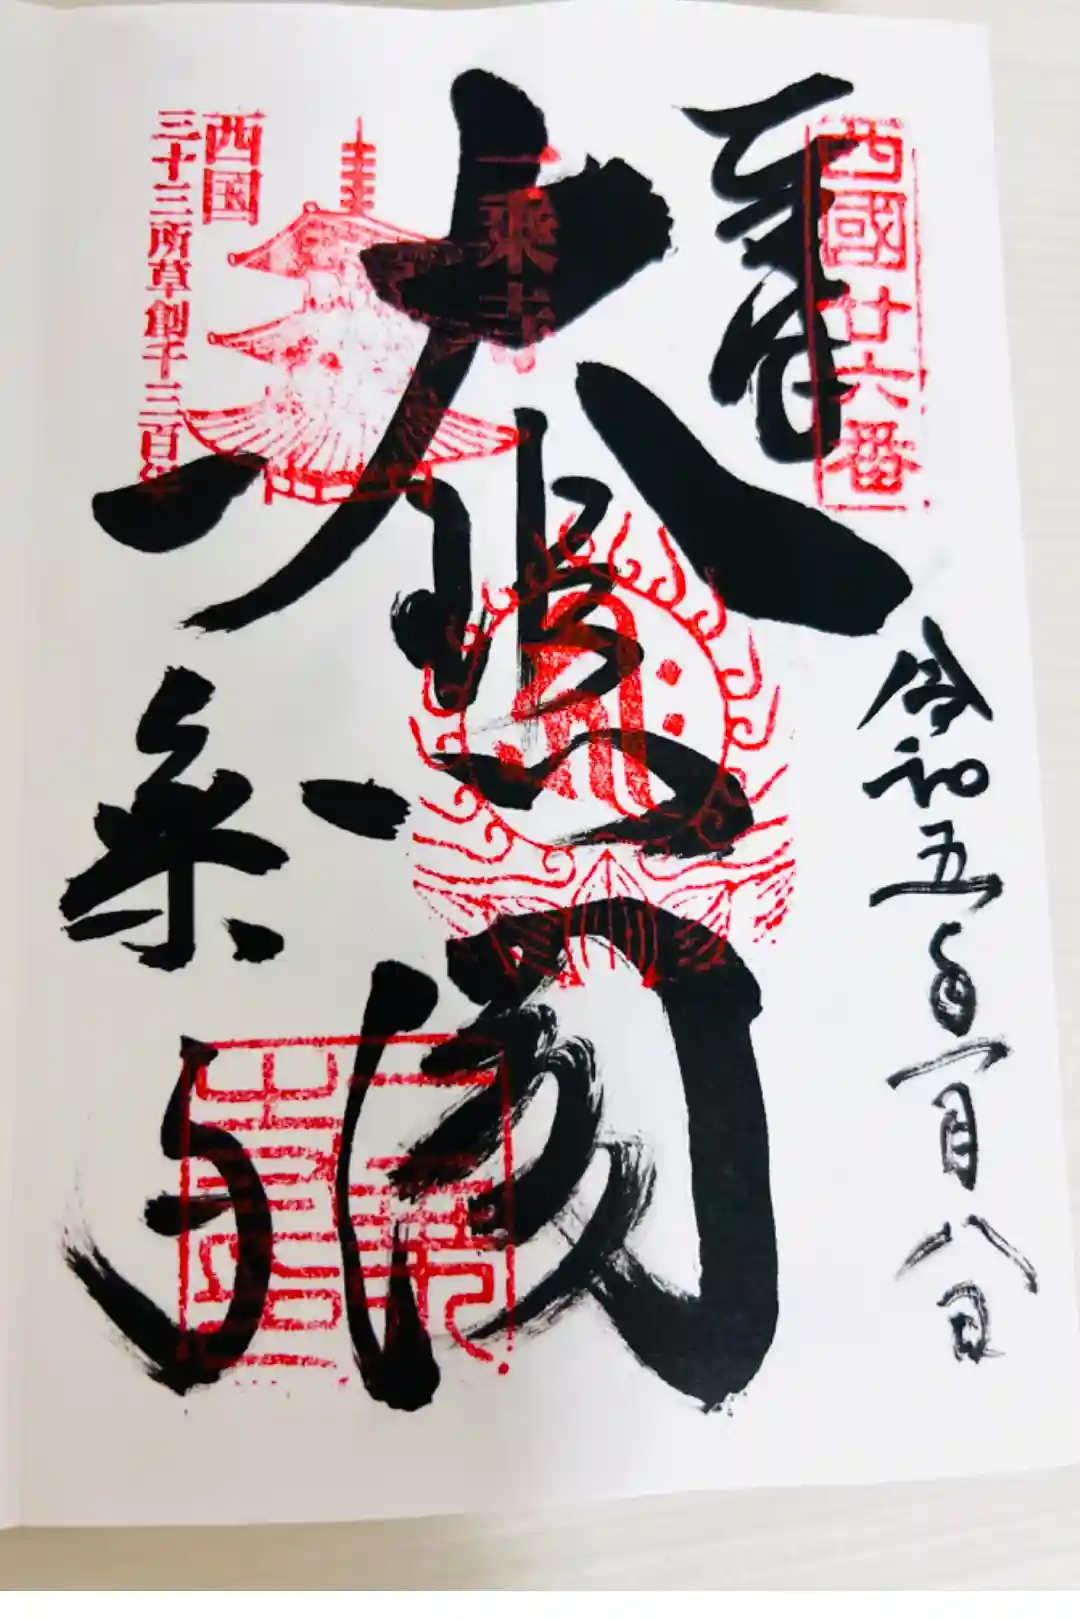 奉拝
西國廿六番
令和五年一月八日
大悲閣
一乗寺
西国
三十三所草創千三百年
一乗寺